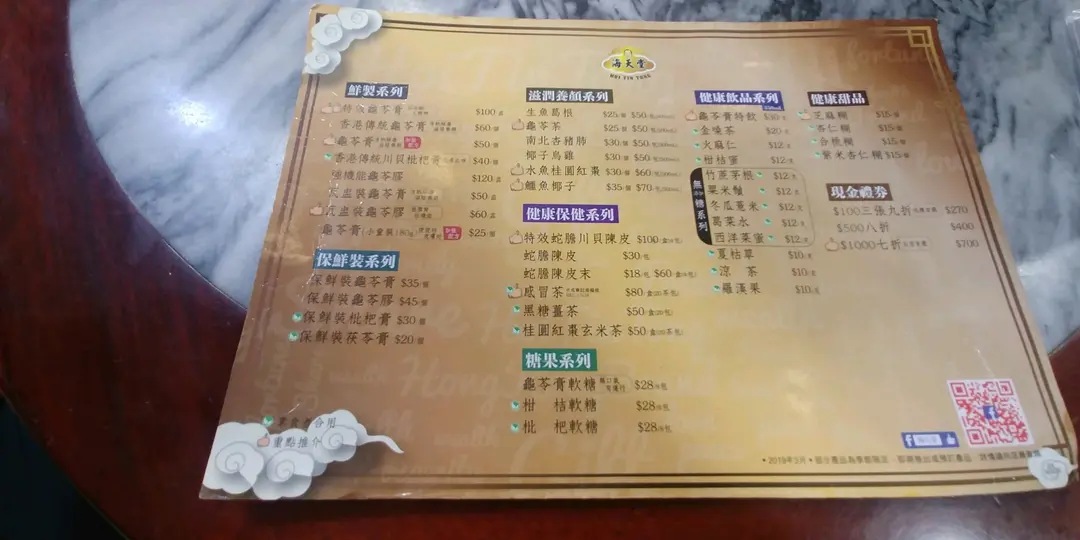 海天堂
HOI TIN TONG
鮮製系列
特效龜苓膏 $100 盅
香港傳統龜苓膏 $60 個
龜苓膏 $50 個
香港傳統川貝枇杷膏 $40 個
強機能龜苓膠 $120 盅
瓦盅裝龜苓膏 $50 盅
瓦盅裝龜苓膠 $60 盅
龜苓膏(小童裝180g) $25 個
保鮮裝系列
保鮮裝龜苓膏 $35 個
保鮮裝龜苓膠 $45 個
保鮮裝枇杷膏 $30 個
保鮮裝茯苓膏 $20 個
素食者合用
重點推介
滋潤養顏系列
生魚葛根 $25 個 $50
龜苓茶 $25 個 $50
南北杏豬肺 $30 個 $50
椰子烏雞 $30 個 $50
水魚桂圓紅棗 $30 個 $60
鱷魚椰子 $35 個 $70
健康保健系列
特效蛇膽川貝陳皮 $100
蛇膽陳皮 $30/包
蛇膽陳皮末 $18/包 $60
感冒茶 $80/盒(20茶包)
黑糖薑茶 $50/盒(20包)
桂圓紅棗玄米茶 $50/盒(20茶包)
糖果系列
龜苓膏軟糖 $28/包
柑桔軟糖 $28/包
枇杷軟糖 $28/包
健康飲品系列
龜苓膏特飲 $30/支
金嗓茶 $20/支
火麻仁 $12/支
柑桔蜜 $12/支
無糖系列
竹蔗茅根 $12/支
粟米鬚 $12/支
冬瓜薏米 $12/支
葛菜水 $12/支
西洋菜蜜 $12/支
夏枯草 $10/支
涼茶 $10/支
羅漢果 $10/支
健康甜品
芝麻糊 $15/個
杏仁糊 $15/個
合桃糊 $15/個
紫米杏仁糊 $15/個
現金禮券
$100三張九折 $270
$500八折 $400
$1000七折 $700